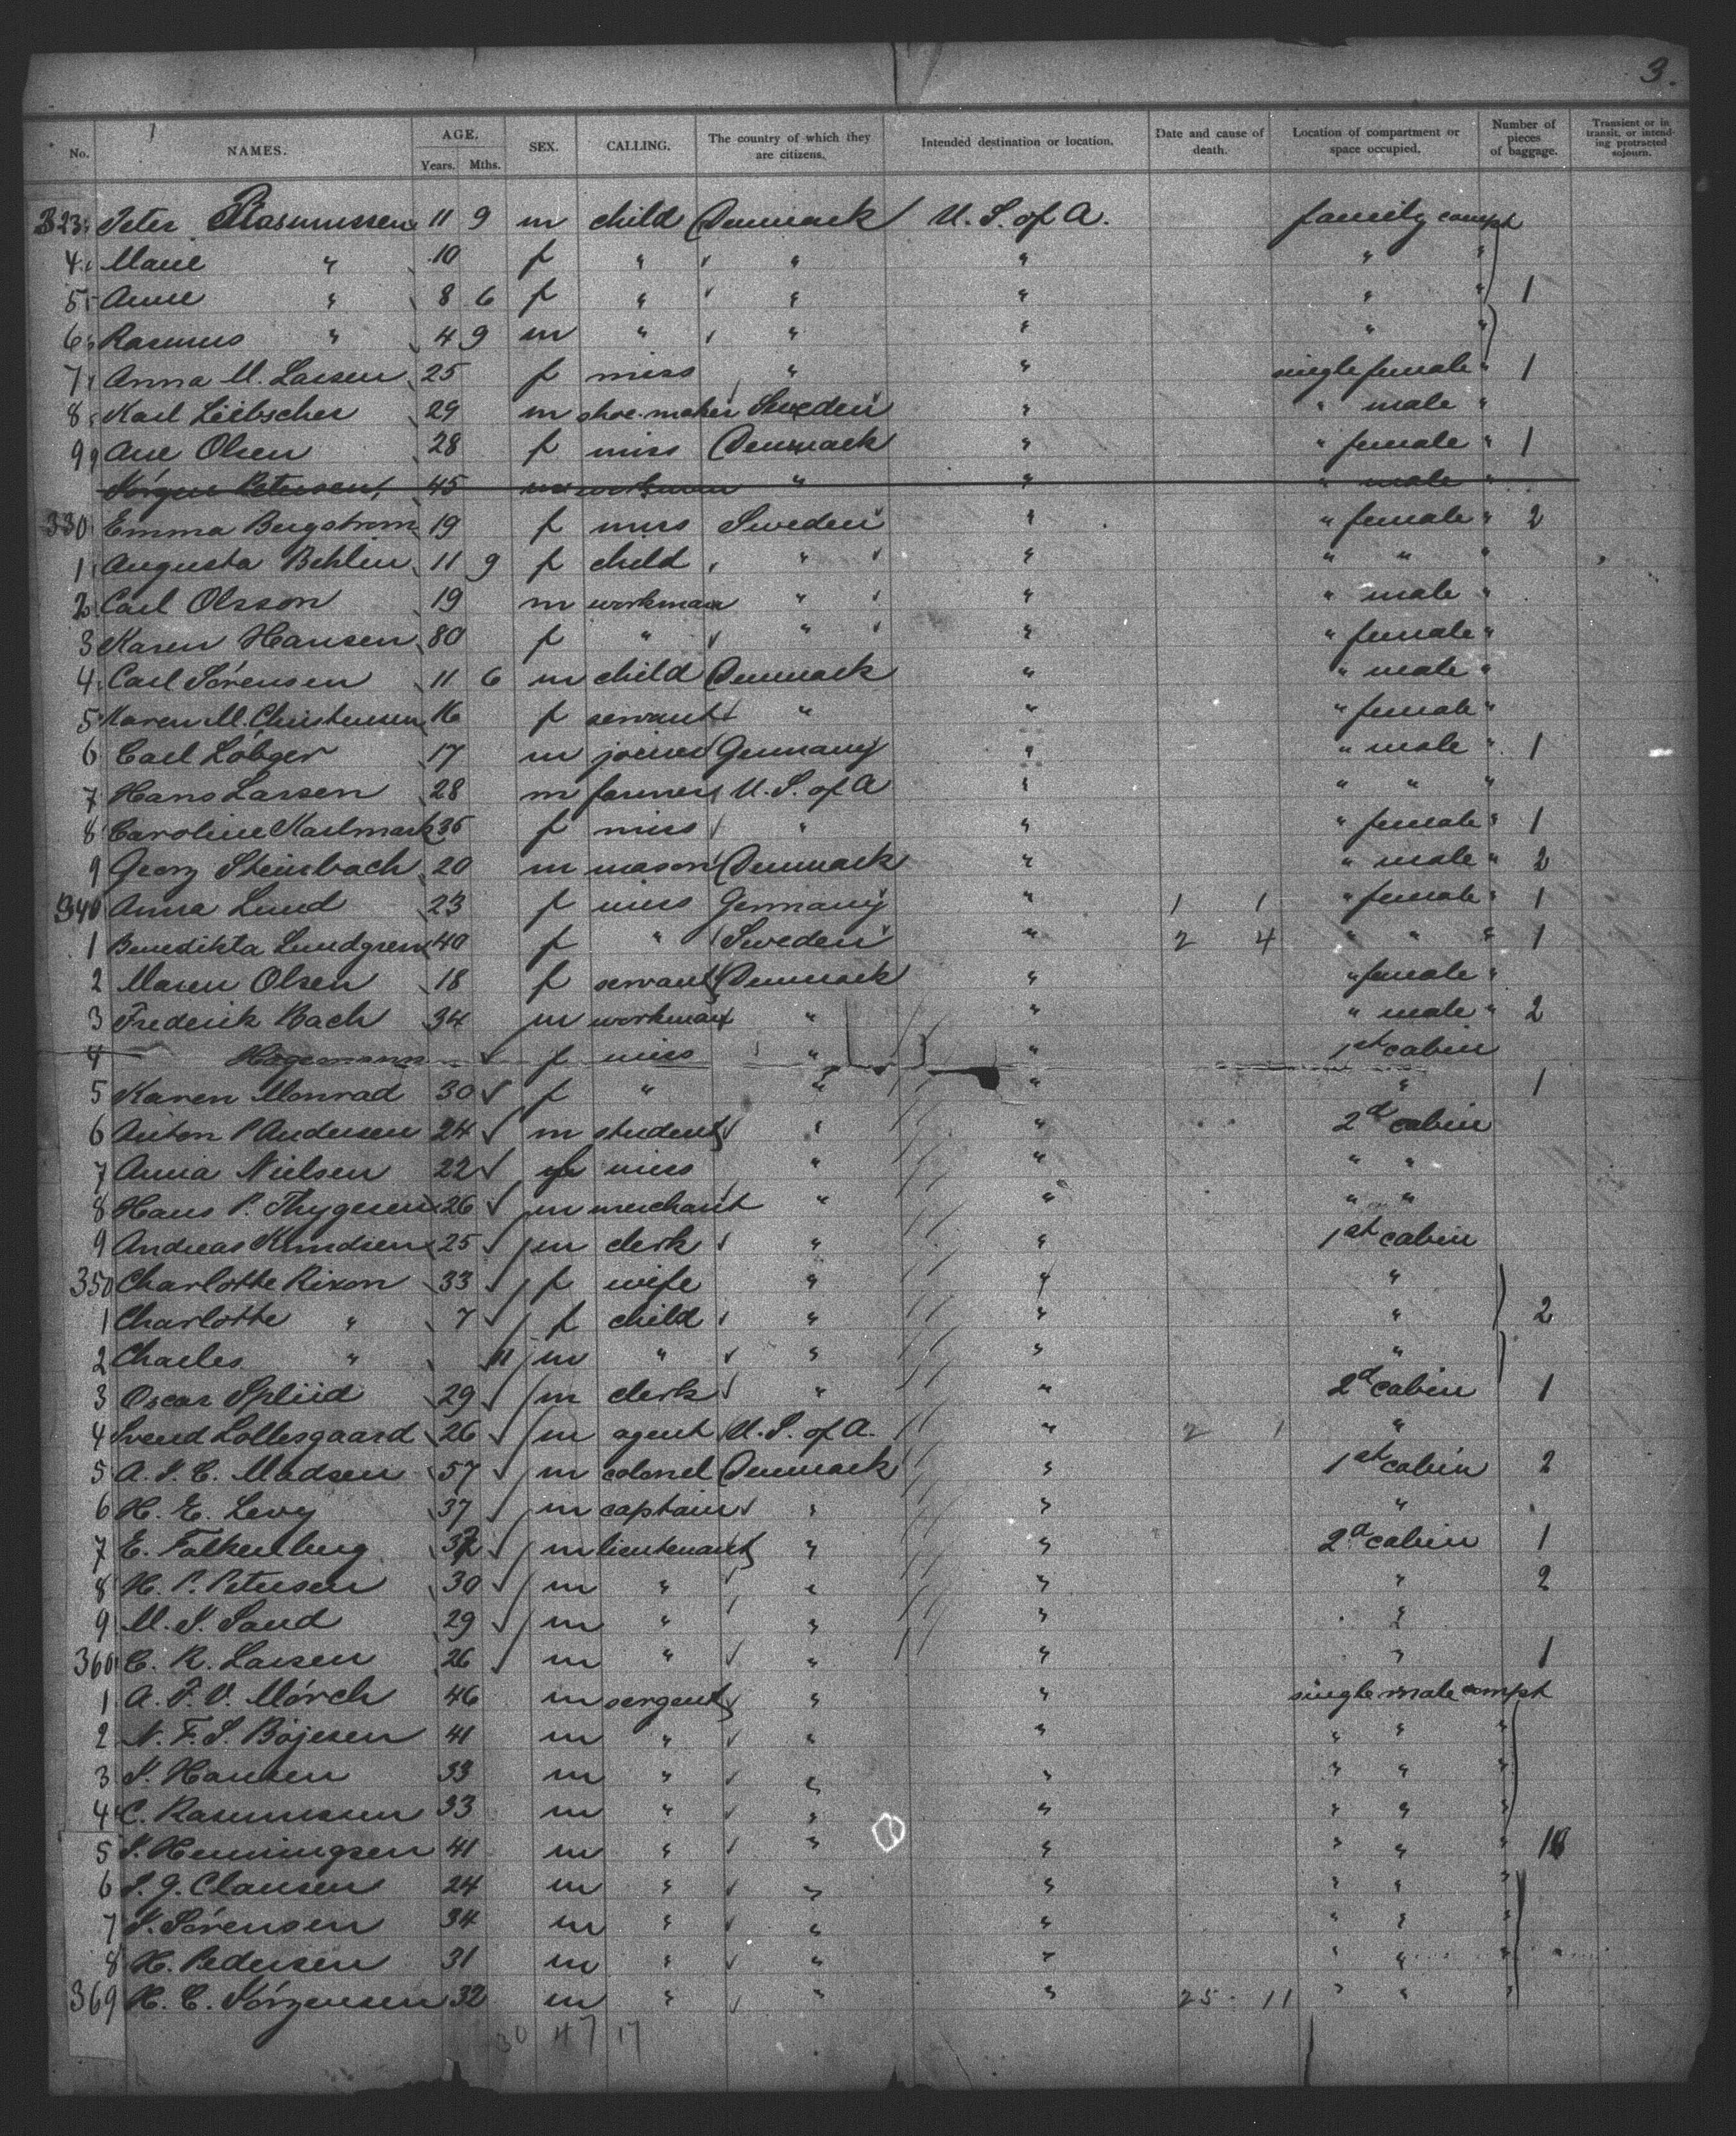 3.
No. NAMES. AGE. Years. Mths. SEX. CALLING. The country of which they are citizens. Intended destination or location. Date and cause of death. Location of compartment or space occupied. Number of pieces of baggage. Transient or in transit, or intending protracted sojourn.
323 Peter Rasmussen 11 9 m child Denmark U. S. of A. family compt
4 Marie " 10 f " " " " "
5 Anne " 8 6 f " " " " " 1
6 Rasmus " 4 9 m " " " " "
7 Anna M. Larsen 25 f miss " " single female " 1
8 Karl Liebscher 29 m shoe-maker Sweden " " male "
9 Ane Olsen 28 f miss Denmark " " female " 1
Jörgen Petersen 45 m workman " " " male "
330 Emma Bergstrom 19 f miss Sweden " " female " 2
1 Augusta Behlin 11 9 f child " " " " "
2 Carl Olsson 19 m workman " " " male "
3 Karen Hansen 80 f " " " " female "
4 Carl Sörensen 11 6 m child Denmark " " male "
5 Karen M. Christensen 16 f servant " " " female "
6 Carl Löbger 17 m joiner Germany " " male " 1
7 Hans Larsen 28 m farmer U. S. of A " " " "
8 Caroline Karlmark 35 f miss " " " female " 1
9 Georg Steinbach 20 m mason Denmark " " male " 2
340 Anna Lund 23 f miss Germany " 1 1 " female " 1
1 Benedikta Lundgren 40 f " Sweden " 2 4 " " " 1
2 Maren Olsen 18 f servant Denmark " " female "
3 Frederik Bach 34 m workman " " " male " 2
4 Hagemann f miss " " 1st cabin
5 Karen Monrad 30 f " " " " 1
6 Anton P Andersen 24 m student " " 2d cabin
7 Anna Nielsen 22 f miss " " " "
8 Hans P. Thygesen 26 m merchant " " " "
9 Andreas Knudsen 25 m clerk " " 1st cabin
350 Charlotte Rixon 33 f wife " " "
1 Charlotte " 7 f child " " " 2
2 Charles " 11 m " " " "
3 Oscar Spliid 29 m clerk " " 2d cabin 1
4 Svend Lollesgaard 26 m agent U. S. of A. " 2 1 "
5 A. P. C. Madsen 57 m colonel Denmark " 1st cabin 2
6 H. E. Levy 37 m captain " " "
7 E. Falkenberg m lieutenant " " 2d cabin 1
8 H. P. Petersen 30 m " " " " 2
9 M. S. Sand 29 m " " " "
360 C. R. Larsen 26 m " " " " 1
1 A. F. V. Mörch 46 m sergent " " single male compt
2 N. F. S. Böjesen 41 m " " " " " "
3 Hansen 33 m " " " " " "
4 C. Rasmussen 33 m " " " " " "
5 Henningsen 41 m " " " " " "
6 Clausen 24 m " " " " " "
7 Sörensen 34 m " " " " " "
8 H. Pedersen 31 m " " " " " "
369 H. C. Jörgensen 32 m " " " 25 11 " " "
30 47 17